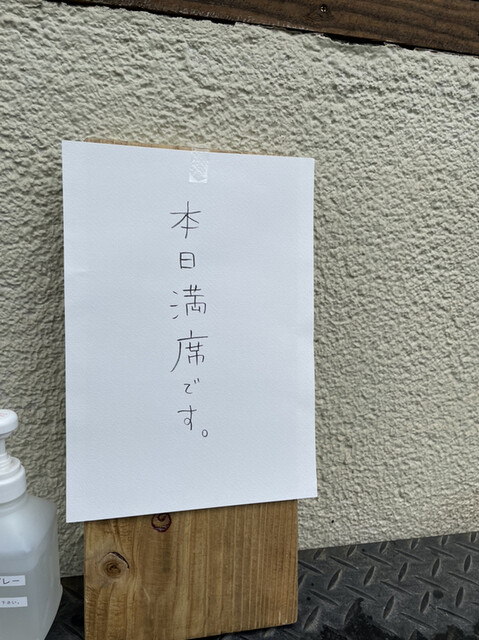 本日満席です。
レー